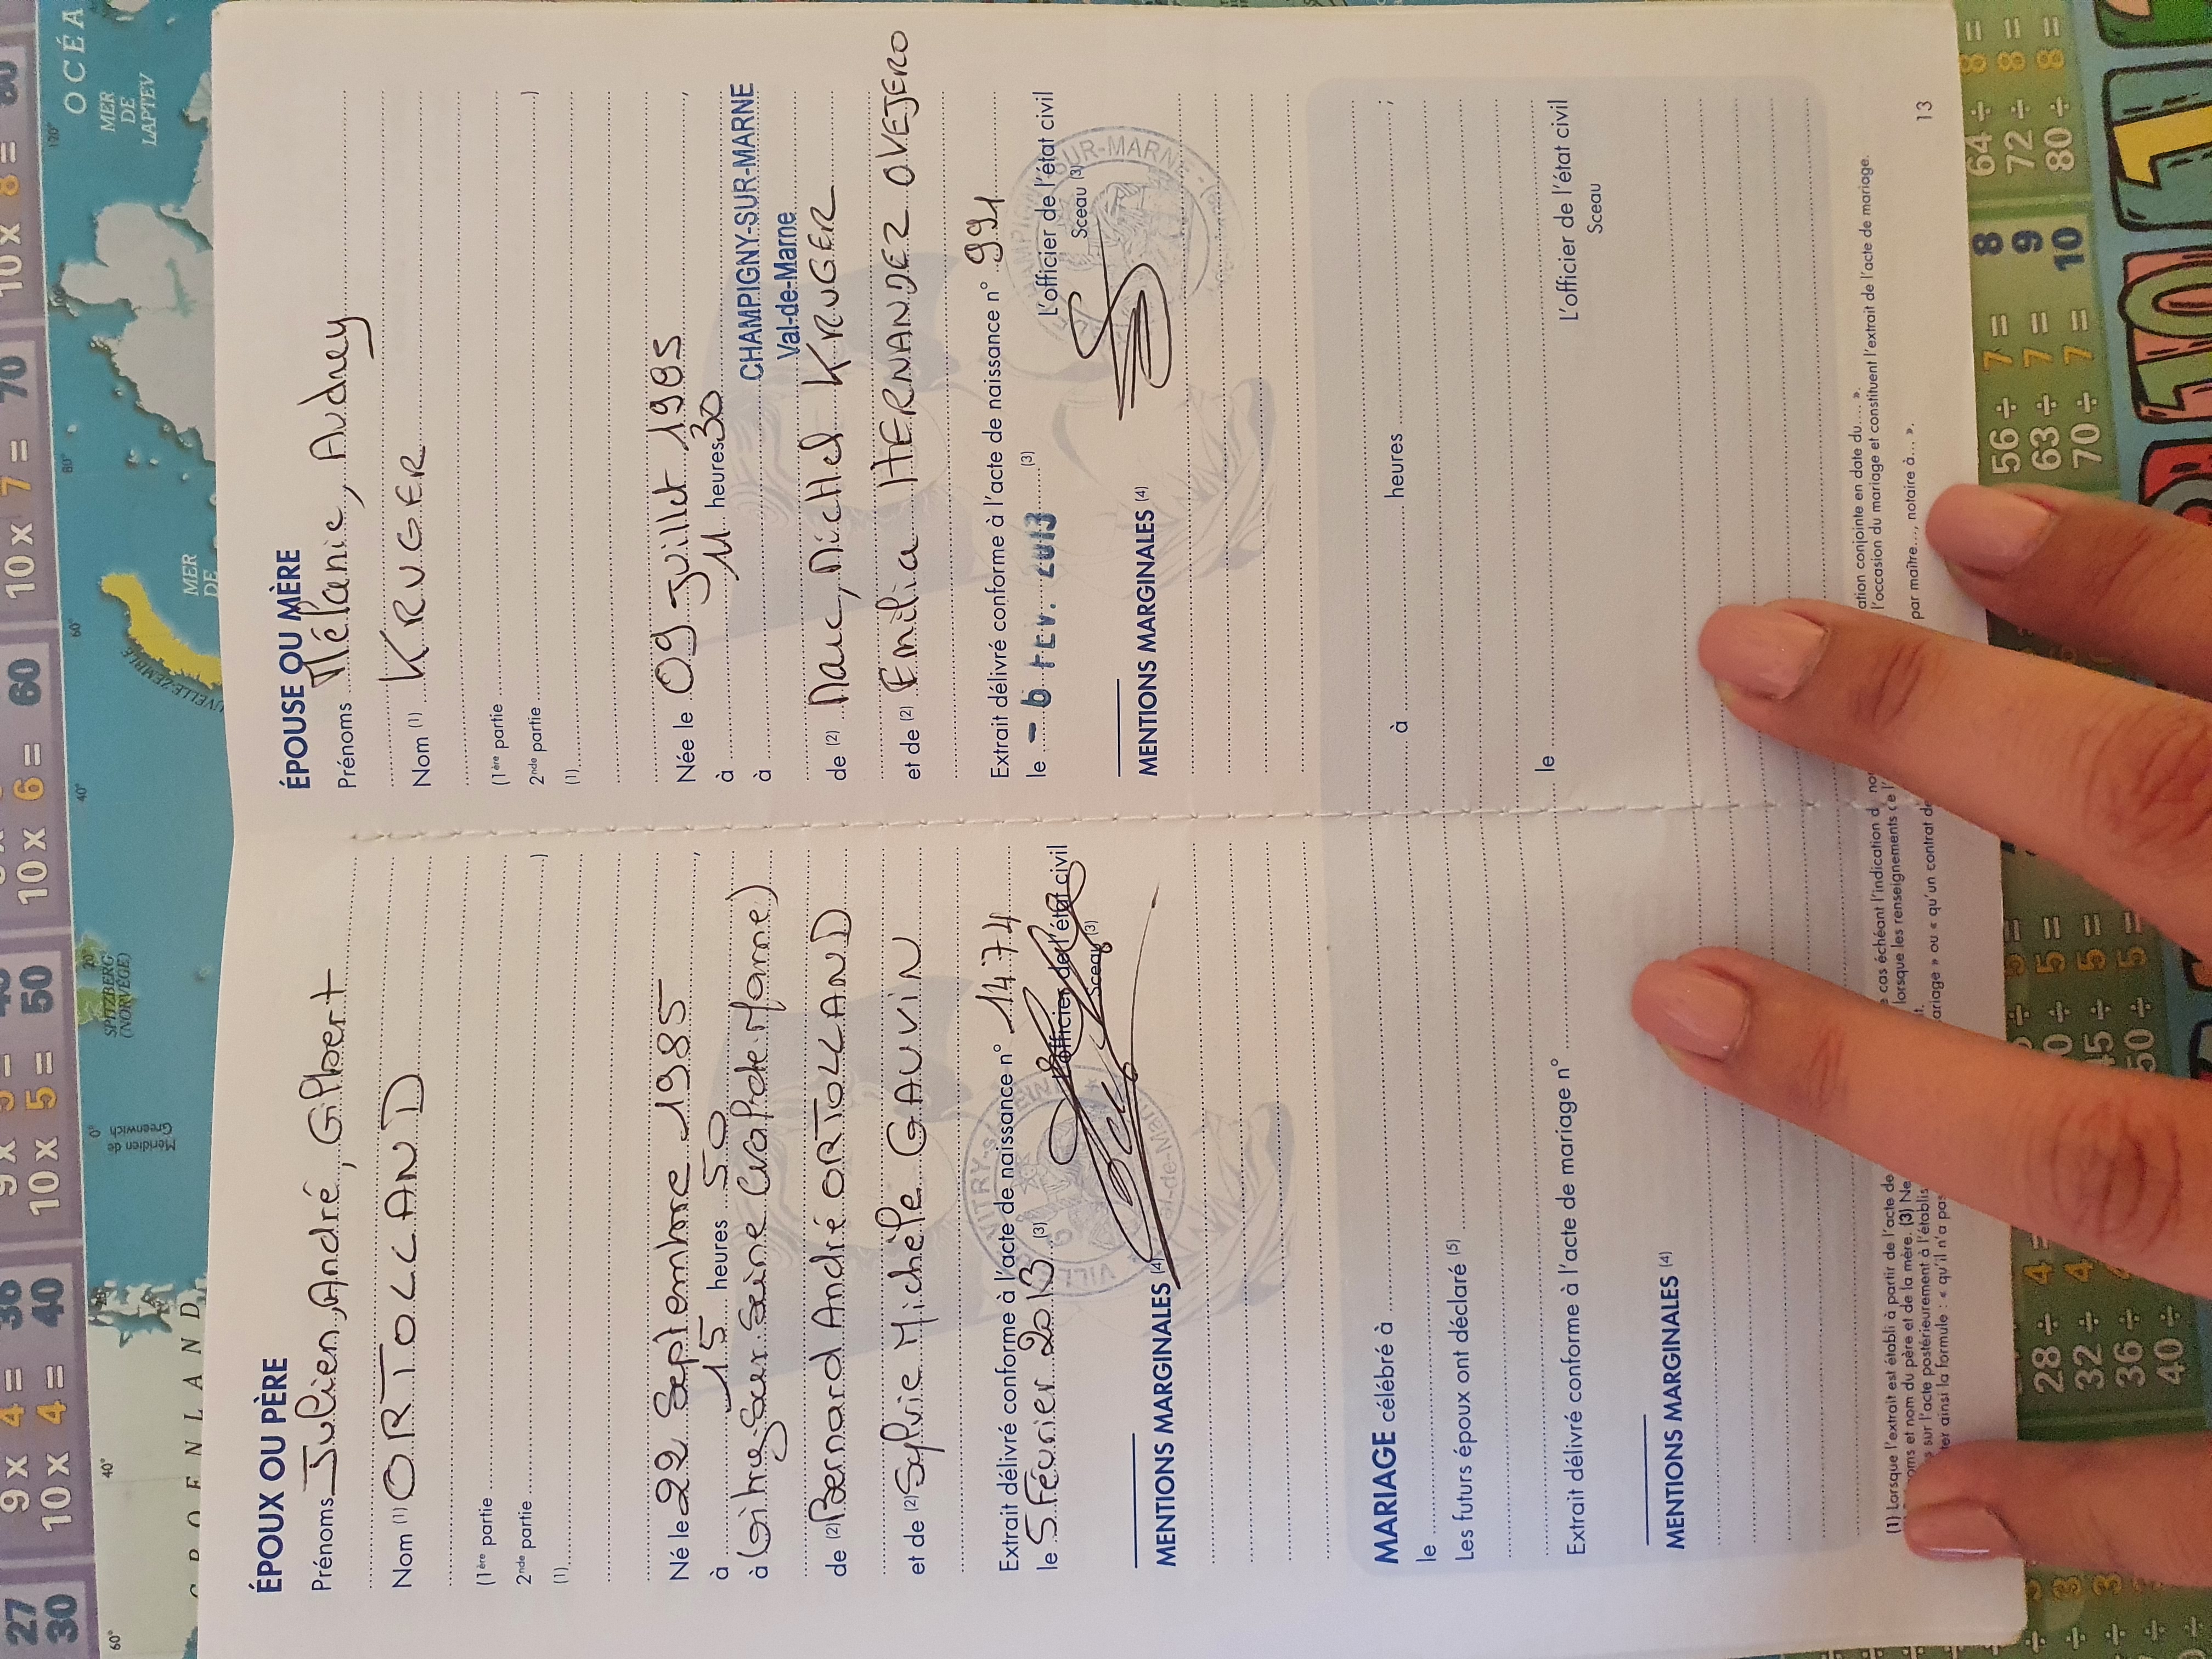 ÉPOUX OU PÈRE
Prénoms Julien, André, Gilbert
Nom (1) ORTOLLAND
(1ère partie
2nde partie )
(1)
Né le 22 Septembre 1985 ,
à 15 heures 50
à Vitry-sur-Seine (Val-de-Marne)
de (2) Bernard André ORTOLLAND
et de (2) Sylvie Michèle GAUVIN
Extrait délivré conforme à l'acte de naissance n° 1474
le 5 Février 2013 (3)
L'officier de l'état civil
Sceau (3)
MENTIONS MARGINALES (4)
ÉPOUSE OU MÈRE
Prénoms Mélanie, Audrey
Nom (1) KRUGER
(1ère partie
2nde partie )
(1)
Née le 09 juillet 1985 ,
à 11 heures 30
à CHAMPIGNY-SUR-MARNE
Val-de-Marne
de (2) Marc, Michel KRUGER
et de (2) Emilia HERNANDEZ OVEJERO
Extrait délivré conforme à l'acte de naissance n° 991
le - 6 FEV. 2013 (3)
L'officier de l'état civil
Sceau (3)
MENTIONS MARGINALES (4)
MARIAGE célébré à ;
le à heures
Les futurs époux ont déclaré (5)
Extrait délivré conforme à l'acte de mariage n° le
L'officier de l'état civil
Sceau
MENTIONS MARGINALES (4)
(1) Lorsque l'extrait est établi à partir de l'acte de
cas échéant l'indication ation conjointe en date du... ».
oms et nom du père et de la mère. (3) Ne
lorsque les renseignements l'occasion du mariage et constituent l'extrait de l'acte de mariage.
sur l'acte postérieurement à l'établis
ter ainsi la formule : « qu'il n'a pas
ariage » ou « qu'un contrat de par maître..., notaire à... ».
13
OCÉA
MER
DE
LAPTEV
MER
DE
SPITZBERG
(NORVÈGE)
Méridien de
Greenwich
GROENLAND
10 x 4 = 40
10 x 5 = 50
10 x 6 = 60
10 x 7 = 70
10 x 8 =
56 ÷ 7 = 8
63 ÷ 7 = 9
70 ÷ 7 = 10
64 ÷ 8 =
72 ÷ 8 =
80 ÷ 8 =